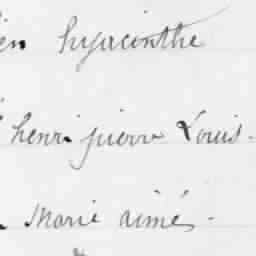 hyacinthe
henri pierre Louis.
Marie aimé.